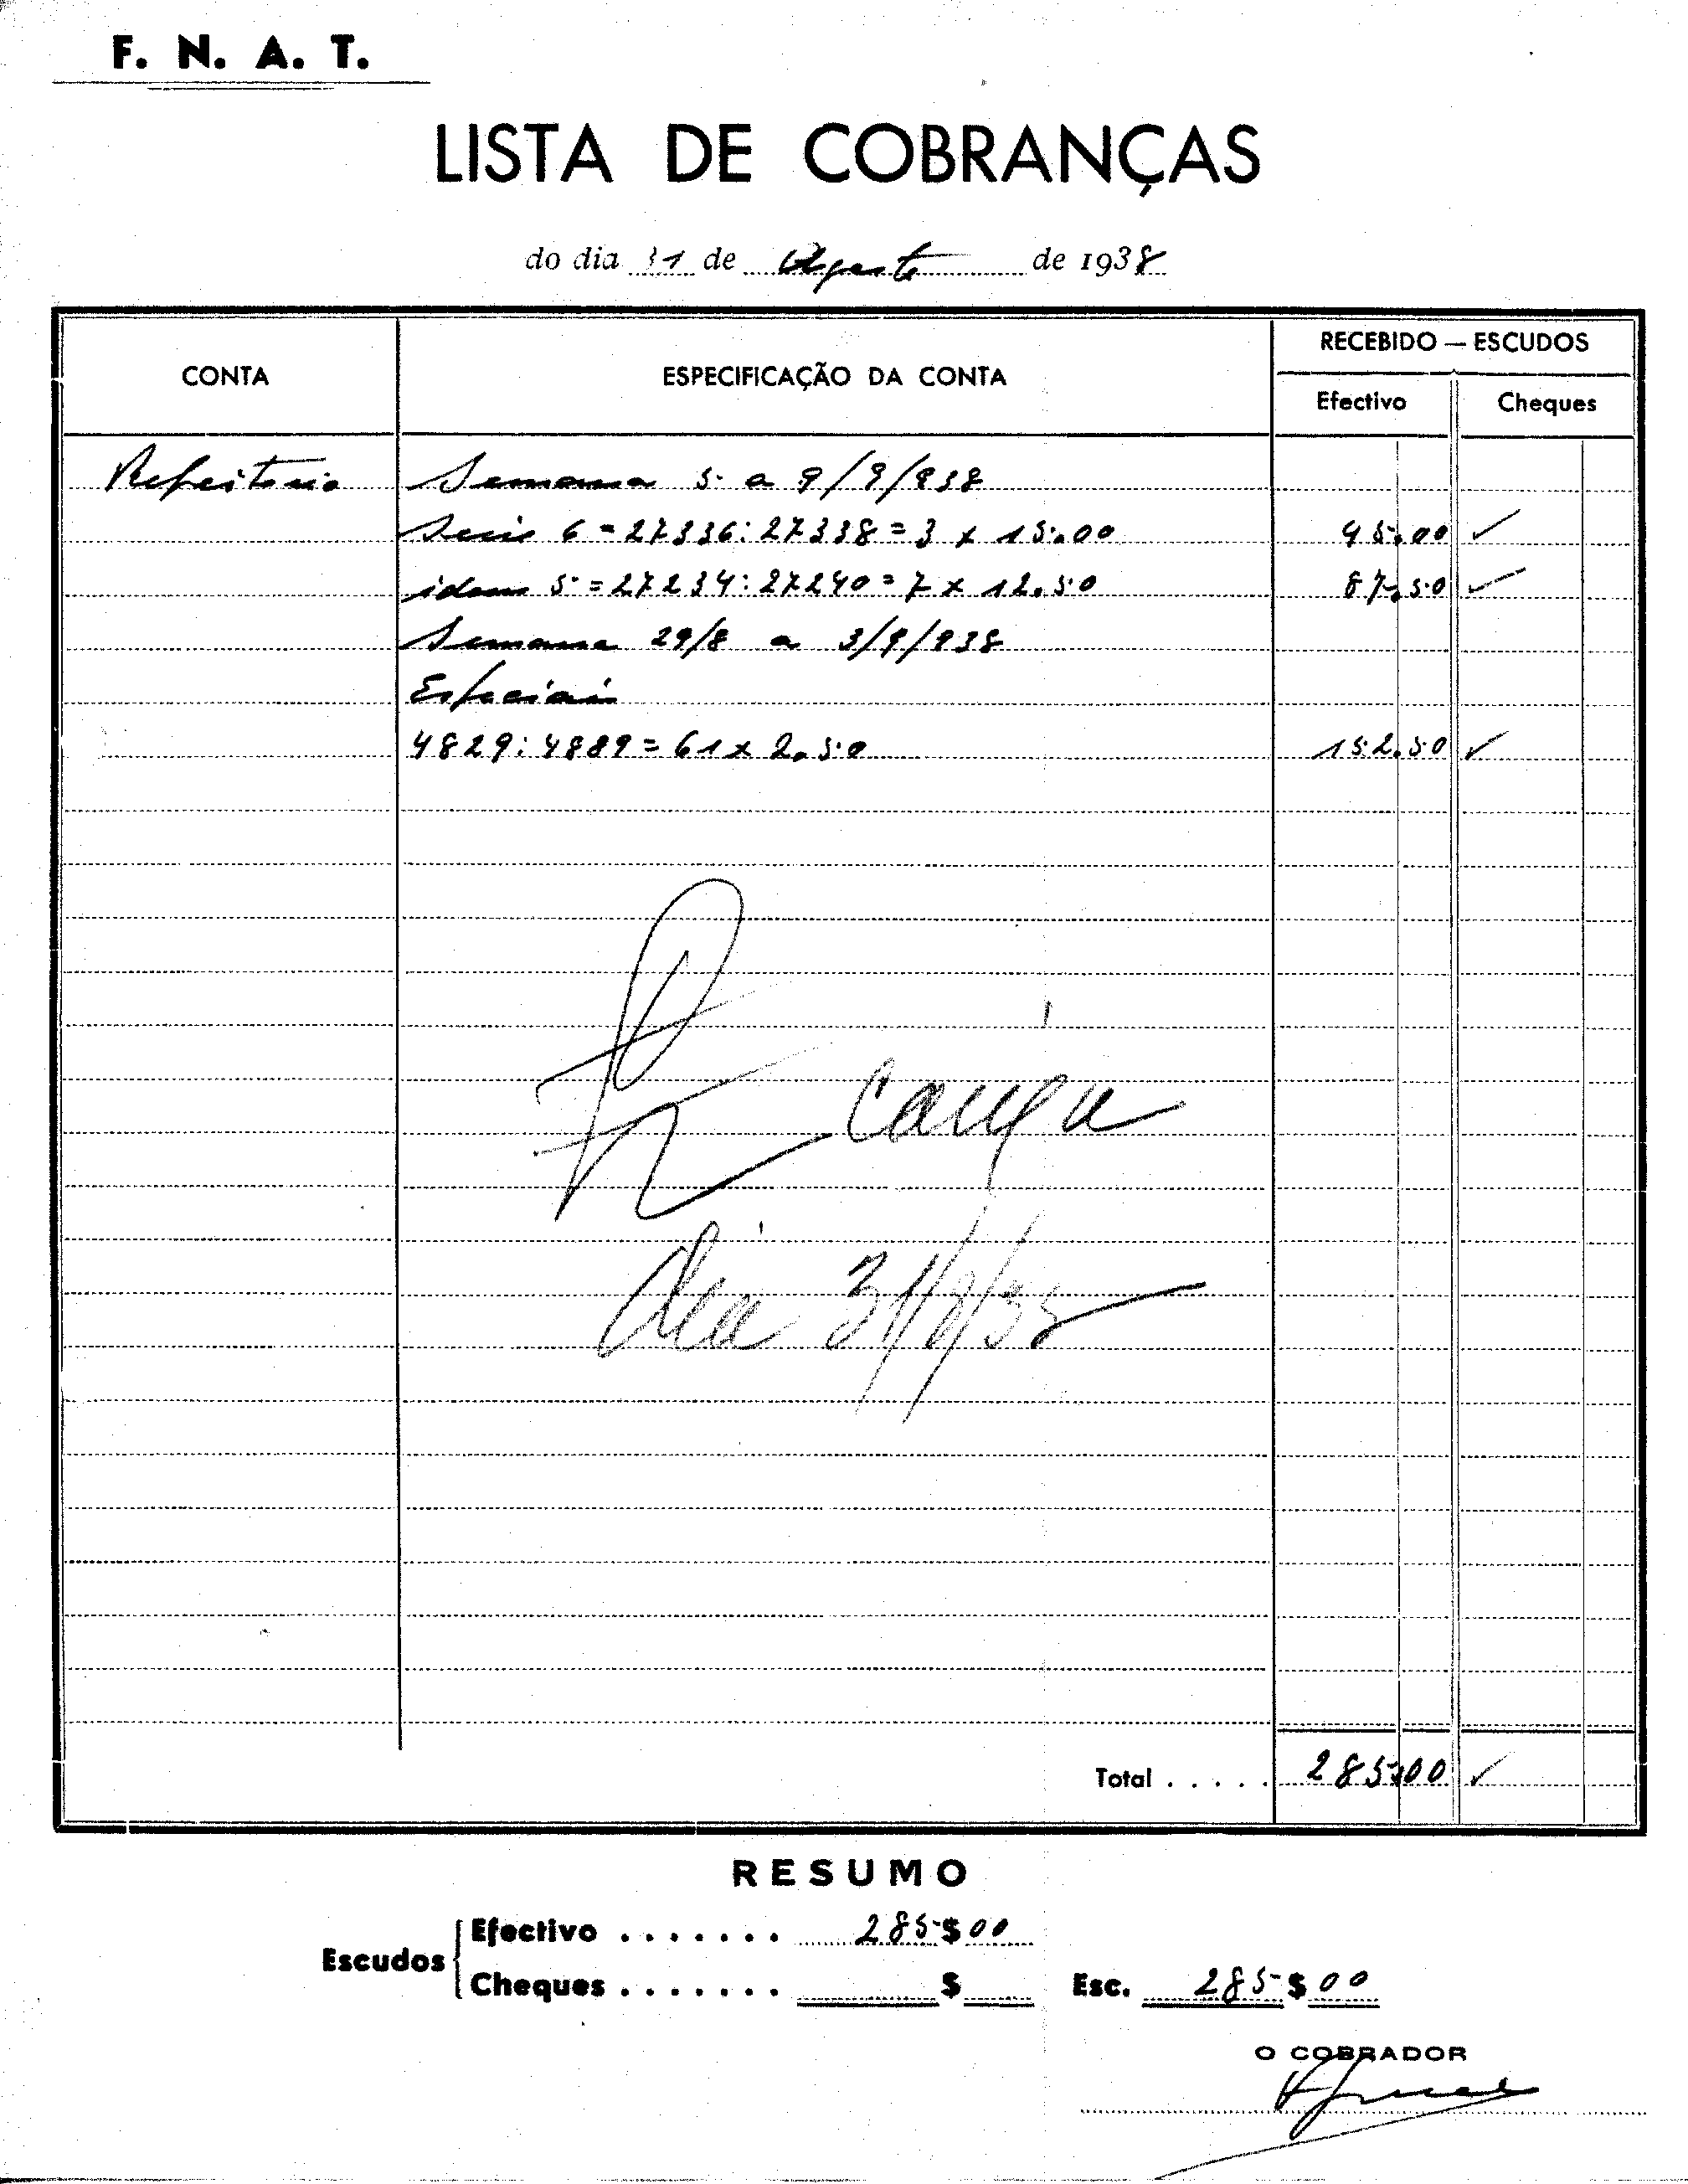 F. N. A. T.
LISTA DE COBRANÇAS
do dia 31 de Agosto de 1938
CONTA ESPECIFICAÇÃO DA CONTA RECEBIDO — ESCUDOS
Efectivo Cheques
Refeitorio Semana 5 a 9/9/938
Serie 6 = 27336:27338 = 3 x 15.00 45.00 ✓
idem 5 = 27234:27240 = 7 x 12.50 87.50 ✓
Semana 29/8 a 3/9/938
Especiais
4829:4889 = 61 x 2.50 152.50 ✓
dia 31/8/38
Total . . . . . 285.00 ✓
RESUMO
Escudos Efectivo . . . . . . . 285$00
Cheques . . . . . . . $ Esc. 285$00
O COBRADOR